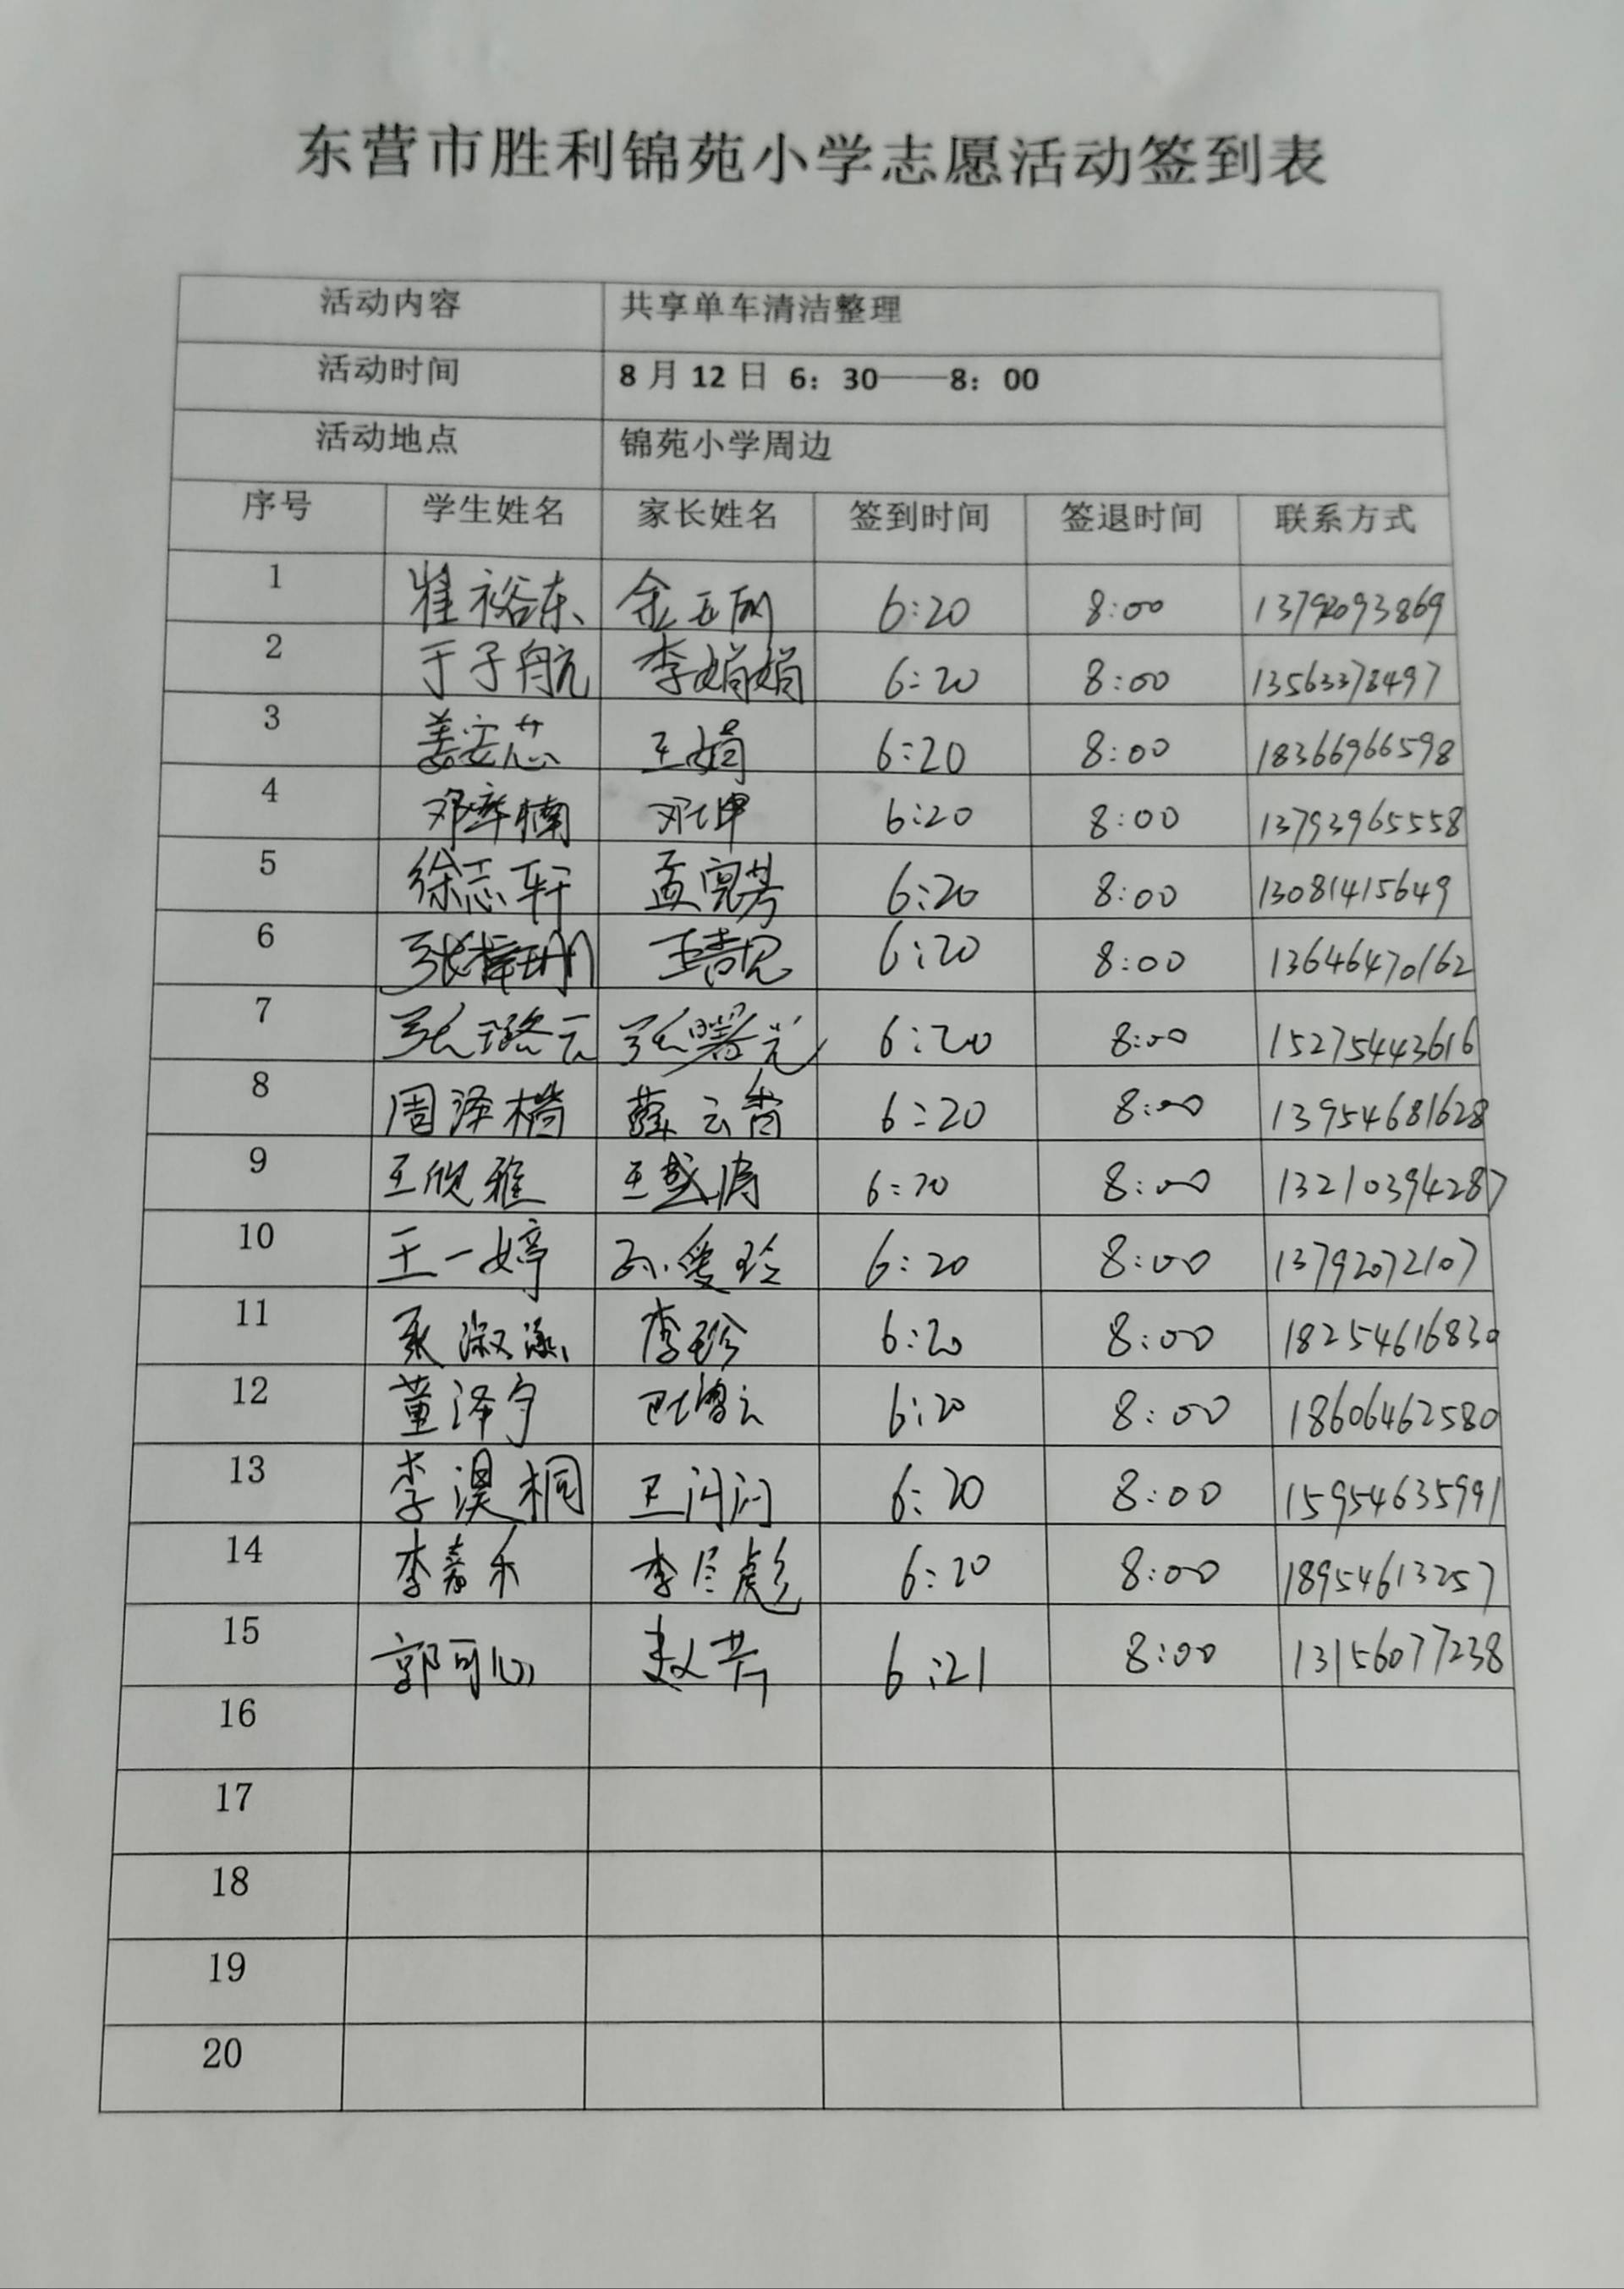 东营市胜利锦苑小学志愿活动签到表
活动内容 共享单车清洁整理
活动时间 8月12日 6：30——8：00
活动地点 锦苑小学周边
序号 学生姓名 家长姓名 签到时间 签退时间 联系方式
1 崔裕东 6:20 8:00
2 于子航 李娟娟 6:20 8:00 13563378497
3 姜安芯 王娟 6:20 8:00 18366966598
4 邓梓楠 邓坤 6:20 8:00 13793965558
5 徐志轩 孟宪芳 6:20 8:00 13081415649
6 张梓玥 6:20 8:00 13646470162
7 张璐云 张曙光 6:20 8:00 15275443616
8 周泽楷 薛云香 6:20 8:00 13954681628
9 王悦雅 王盛涛 6:20 8:00 13210394287
10 王一婷 孙爱玲 6:20 8:00 13792072107
11 淑涵 李珍 6:20 8:00 18254616830
12 董泽宁 6:20 8:00 18606462580
13 李淏桐 卫闪闪 6:20 8:00 15954635991
14 李嘉禾 李尽彪 6:20 8:00 18954613257
15 郭可心 赵芳 6:21 8:00 13156077238
16
17
18
19
20